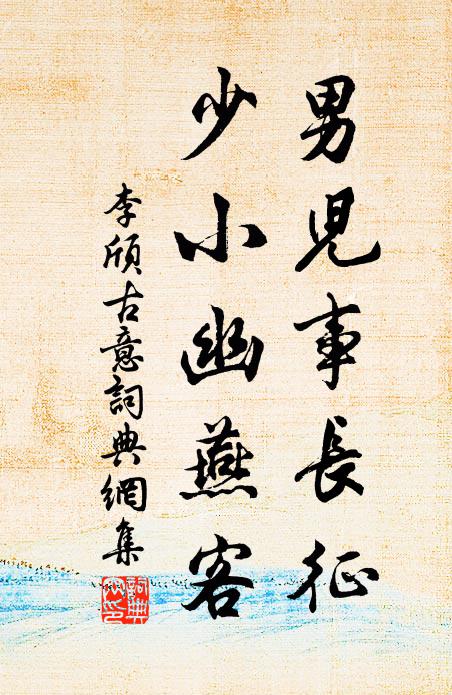 男兒事長征
少小幽燕客
李頎古意詞典網集